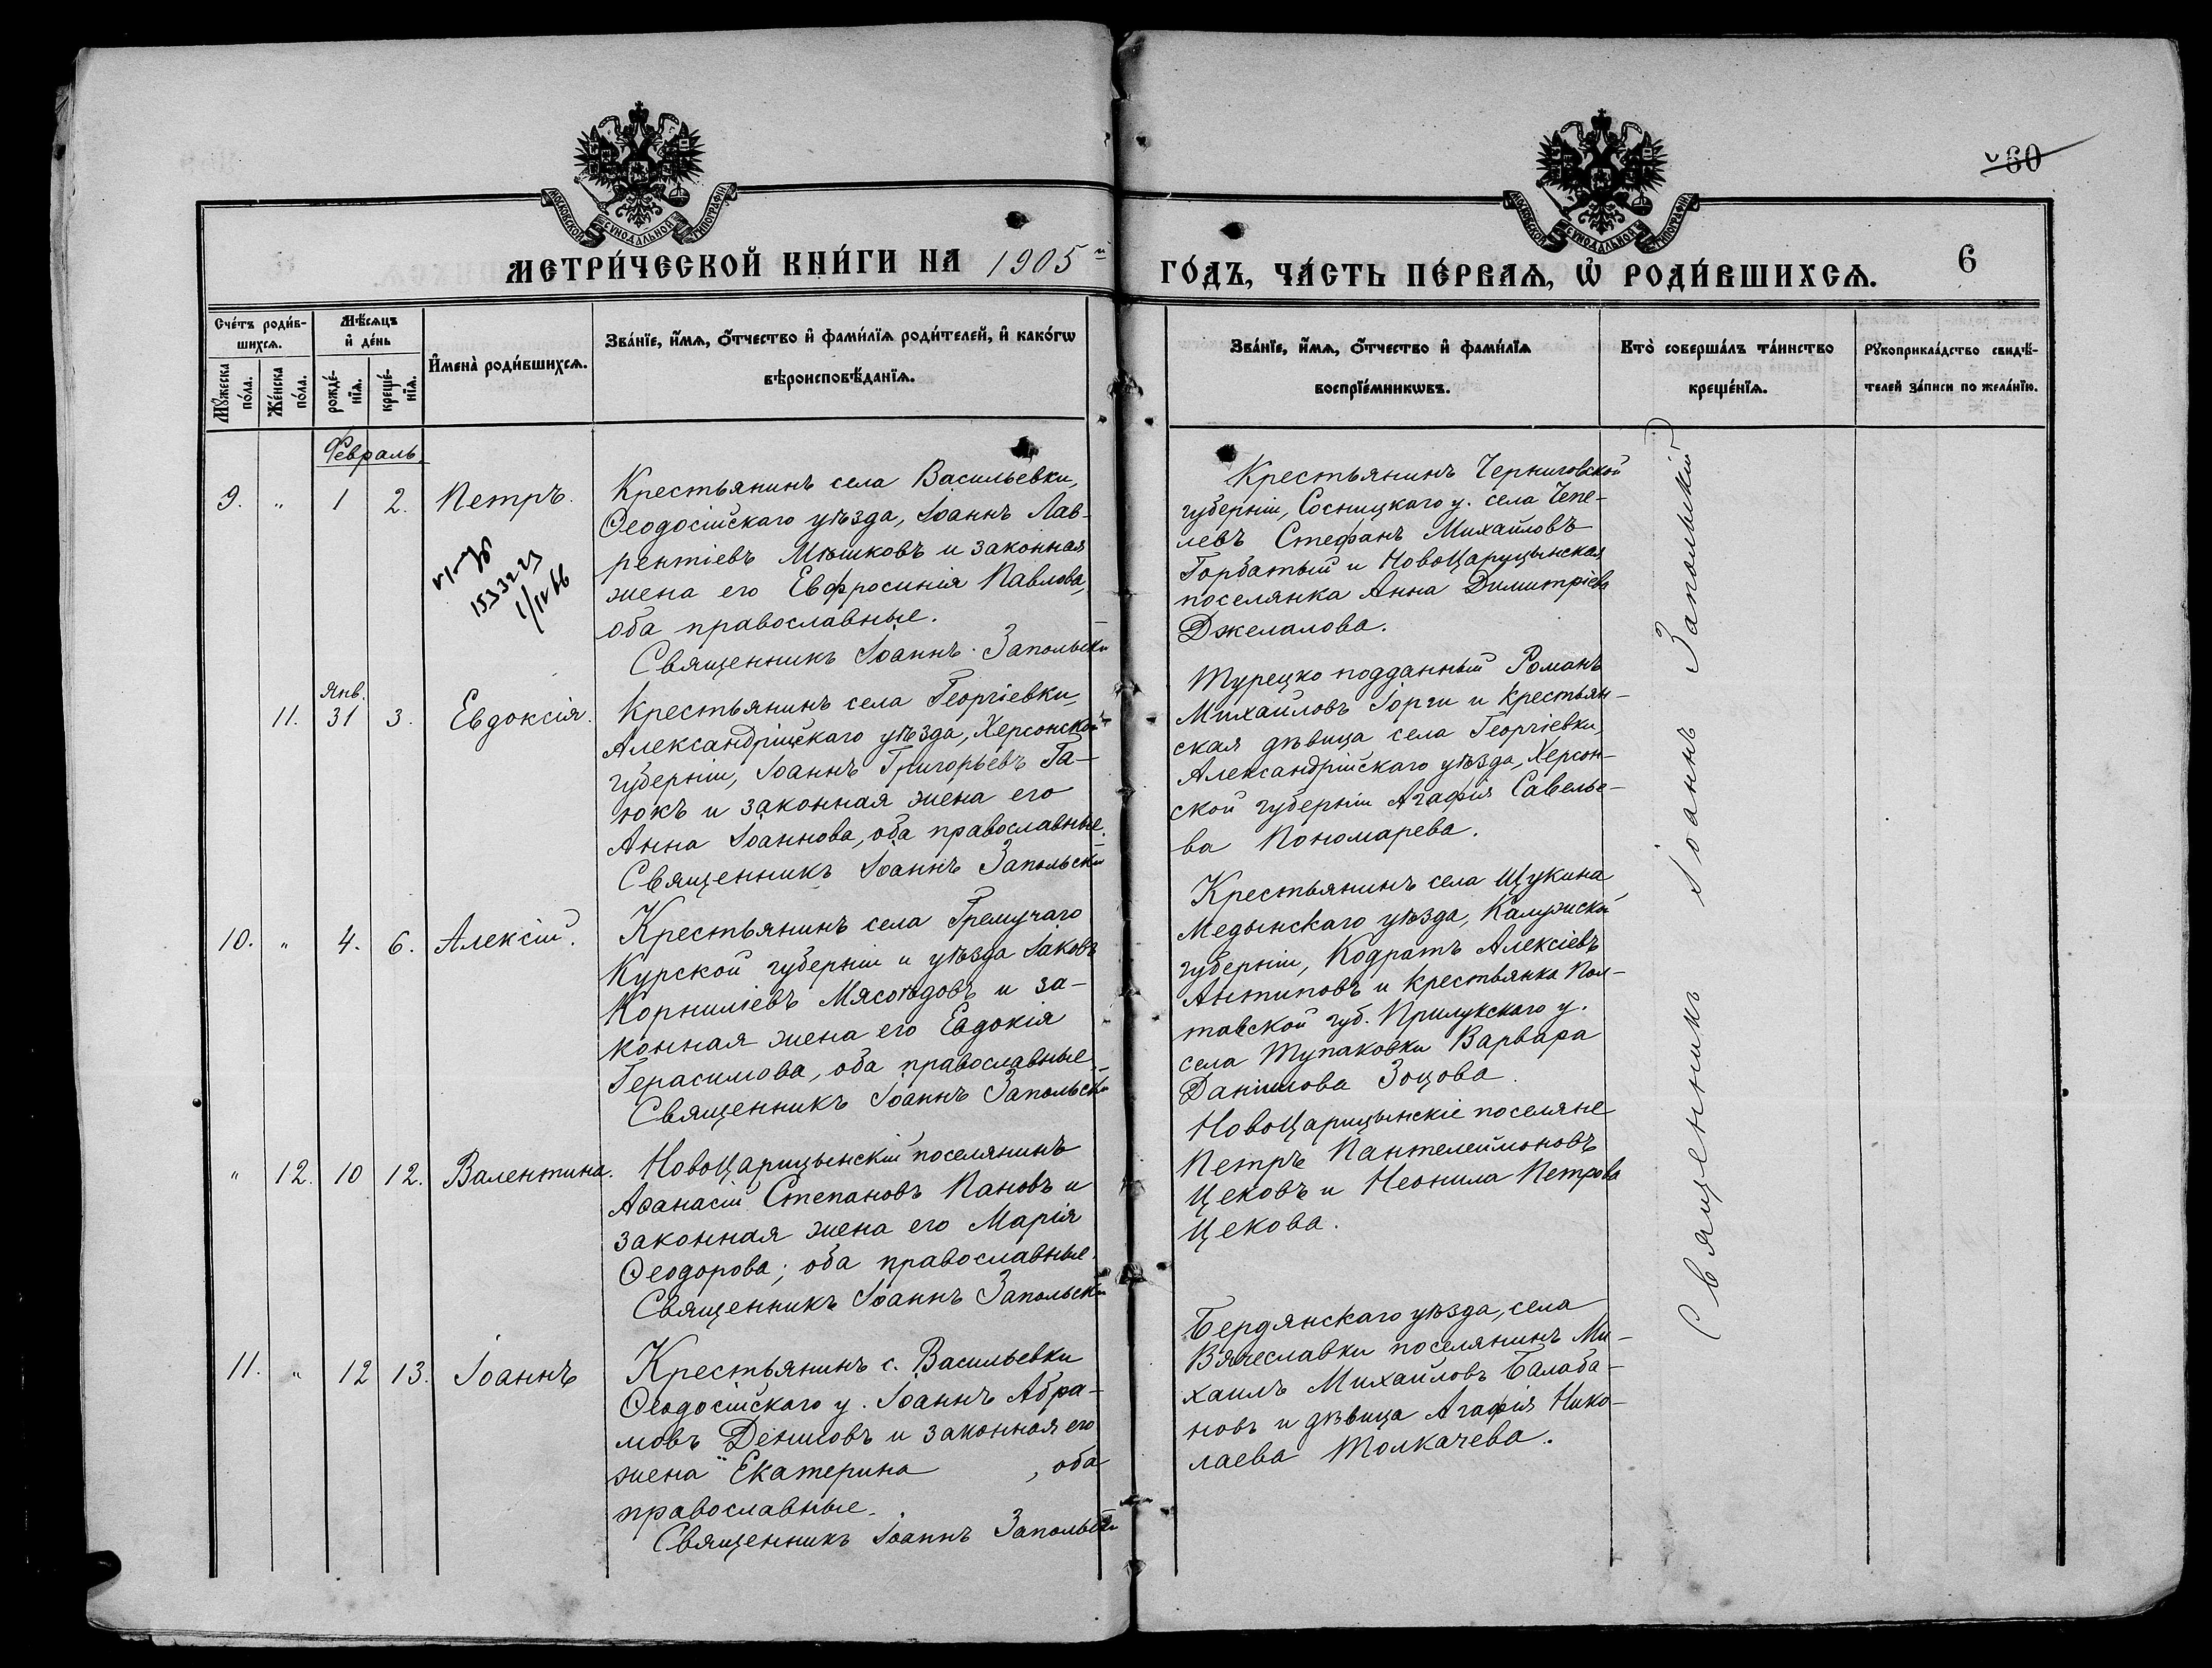 60
МОСКОВСКОЙ СѴНОДАЛЬНОЙ ТИПОГРАФІИ
МОСКОВСКОЙ СѴНОДАЛЬНОЙ ТИПОГРАФІИ
МЕТРИ́ЧЕСКОЙ КНИ́ГИ НА 1905й
ГО́ДЪ, ЧА́СТЬ ПЕ́РВАѦ, Ѡ҆ РОДИ́ВШИХСѦ.
6
Сче́тъ роди́в-
шихсѧ.
Мꙋ́жеска
по́ла.
Же́нска
по́ла.
Мѣ́сѧцъ
и҆ де́нь
рожде́-
нїѧ.
креще́-
нїѧ.
И҆мена̀ роди́вшихсѧ.
Зва́нїе, и҆́мѧ, ѻ҆́тчество и҆ фами́лїѧ роди́телей, и҆ како́гѡ
вѣроисповѣ́данїѧ.
Зва́нїе, и҆́мѧ, ѻ҆́тчество и҆ фами́лїѧ
воспрїе́мникѡвъ.
Кто̀ соверша́лъ та́инство
креще́нїѧ.
Рꙋкоприкла́дство свидѣ́-
телей за́писи по жела́нїю.
Февраль.
9. " 1 2. Петръ.
1533223
1/IV 66
Крестьянинъ села Васильевки,
Ѳеодосійскаго уѣзда, Іоаннъ Лав-
рентіевъ Мѣшковъ и законная
жена его Евфросинія Павлова,
оба православные.
Священникъ Іоаннъ Запольскій
Крестьянинъ Черниговской
губерніи, Сосницкаго у. села Чепе-
левъ Стефанъ Михайловъ
Горбатый и НовоЦарицынская
поселянка Анна Димитріева
Джелалова.
Янв.
11. 31 3. Евдоксія.
Крестьянинъ села Георгіевки,
Александрійскаго уѣзда, Херсонской
губерніи, Іоаннъ Григорьевъ Га-
юкъ и законная жена его
Анна Іоаннова, оба православные.
Священникъ Іоаннъ Запольскій
Турецко подданный Романъ
Михайловъ Іорги и крестьян-
ская дѣвица села Георгіевки,
Александрійскаго уѣзда, Херсон-
ской губерніи Агафія Савелье-
ва Пономарева.
10. " 4. 6. Алексій.
Крестьянинъ села Гремучаго
Курской губерніи и уѣзда Іаковъ
Корниліевъ Мясоѣдовъ и за-
конная жена его Евдокія
Герасимова, оба православные
Священникъ Іоаннъ Запольскій
Крестьянинъ села Щукина
Медынскаго уѣзда, Калужской
губерніи, Кодратъ Алексіевъ
Антиповъ и крестьянка Пол-
тавской губ. Прилукскаго у.
села Тупаковки Варвара
Даніилова Зоцова.
" 12. 10 12. Валентина.
НовоЦарицынскій поселянинъ
Аѳанасій Степановъ Пановъ и
законная жена его Марія
Ѳеодорова; оба православные.
Священникъ Іоаннъ Запольскій
НовоЦарицынскіе поселяне
Петръ Пантелеймоновъ
Цековъ и Неонила Петрова
Цекова.
11. " 12 13. Іоаннъ
Крестьянинъ с. Васильевки
Ѳеодосійскаго у. Іоаннъ Абра-
мовъ Денисовъ и законная его
жена Екатерина , оба
православные.
Священникъ Іоаннъ Запольскій
Бердянскаго уѣзда, села
Вячеславки поселянинъ Ми-
хаилъ Михайловъ Балаба-
новъ и дѣвица Агафія Нико-
лаева Толкачева.
Священникъ Іоаннъ Запольскій